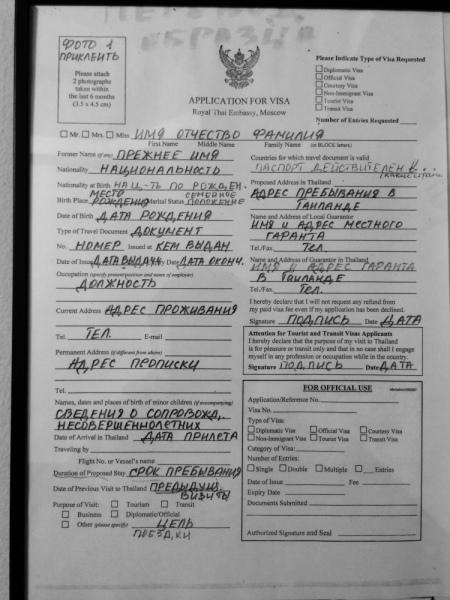 ПЕРЕВОД
ОБРАЗЦА
ФОТО 1
ПРИКЛЕИТЬ
Please attach
2 photographs
taken within
the last 6 months
(3.5 x 4.5 cm)
APPLICATION FOR VISA
Royal Thai Embassy, Moscow
Please Indicate Type of Visa Requested
Diplomatic Visa
Official Visa
Courtesy Visa
Non-Immigrant Visa
Tourist Visa
Transit Visa
Number of Entries Requested
Mr. Mrs. Miss ИМЯ ОТЧЕСТВО ФАМИЛИЯ
First Name Middle Name Family Name (in BLOCK letters)
Former Name (if any) ПРЕЖНЕЕ ИМЯ
Nationality НАЦИОНАЛЬНОСТЬ
Nationality at Birth НАЦ-ТЬ ПО РОЖДЕН.
МЕСТО СЕМЕЙНОЕ
Birth Place РОЖДЕНИЯ Marital Status ПОЛОЖЕНИЕ
Date of Birth ДАТА РОЖДЕНИЯ
Type of Travel Document ДОКУМЕНТ
No. НОМЕР Issued at КЕМ ВЫДАН
Date of Issue ДАТА ВЫДАЧИ Date ДАТА ОКОНЧ.
Occupation (specify present position and name of employer)
ДОЛЖНОСТЬ
Current Address АДРЕС ПРОЖИВАНИЯ
Tel. ТЕЛ. E-mail
Permanent Address (if different from above)
АДРЕС ПРОПИСКИ
Tel.
Names, dates and places of birth of minor children (if accompanying)
СВЕДЕНИЯ О СОПРОВОЖД.
НЕСОВЕРШЕННОЛЕТНИХ
Date of Arrival in Thailand ДАТА ПРИЛЕТА
Traveling by
Flight No. or Vessel's name
Duration of Proposed Stay СРОК ПРЕБЫВАНИЯ
Date of Previous Visit to Thailand ПРЕДЫДУЩ.
ВИЗИТЫ
Purpose of Visit: Tourism Transit
Business Diplomatic/Official
Other (please specify) ЦЕЛЬ
ПОЕЗДКИ
Countries for which travel document is valid
ПАСПОРТ ДЕЙСТВИТЕЛЕН В...
Proposed Address in Thailand
АДРЕС ПРЕБЫВАНИЯ В
ТАИЛАНДЕ
Name and Address of Local Guarantor
ИМЯ И АДРЕС МЕСТНОГО
ГАРАНТА
Tel./Fax. ТЕЛ.
Name and Address of Guarantor in Thailand
ИМЯ И АДРЕС ГАРАНТА
В ТАИЛАНДЕ
Tel./Fax. ТЕЛ.
I hereby declare that I will not request any refund from
my paid visa fee even if my application has been declined.
Signature ПОДПИСЬ Date ДАТА
Attention for Tourist and Transit Visas Applicants
I hereby declare that the purpose of my visit to Thailand
is for pleasure or transit only and that in no case shall I engage
myself in any profession or occupation while in the country.
Signature ПОДПИСЬ Date ДАТА
FOR OFFICIAL USE
Application/Reference No.
Visa No.
Type of Visa:
Diplomatic Visa Official Visa Courtesy Visa
Non-Immigrant Visa Tourist Visa Transit Visa
Category of Visa:
Number of Entries:
Single Double Multiple Entries
Date of Issue Fee
Expiry Date
Documents Submitted
Authorized Signature and Seal